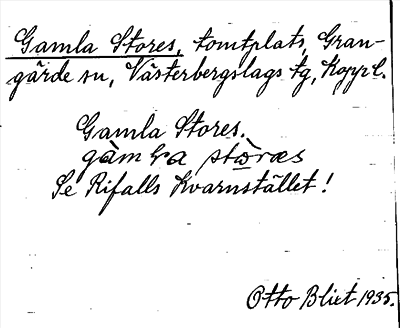 Gamla Stores, tomtplats, Gran-
gärde sn, Västerbergslags tg, Kopp. l.
Gamla Stores.
Se Rifalls Kvarnstället!
Otto Blixt 1935.